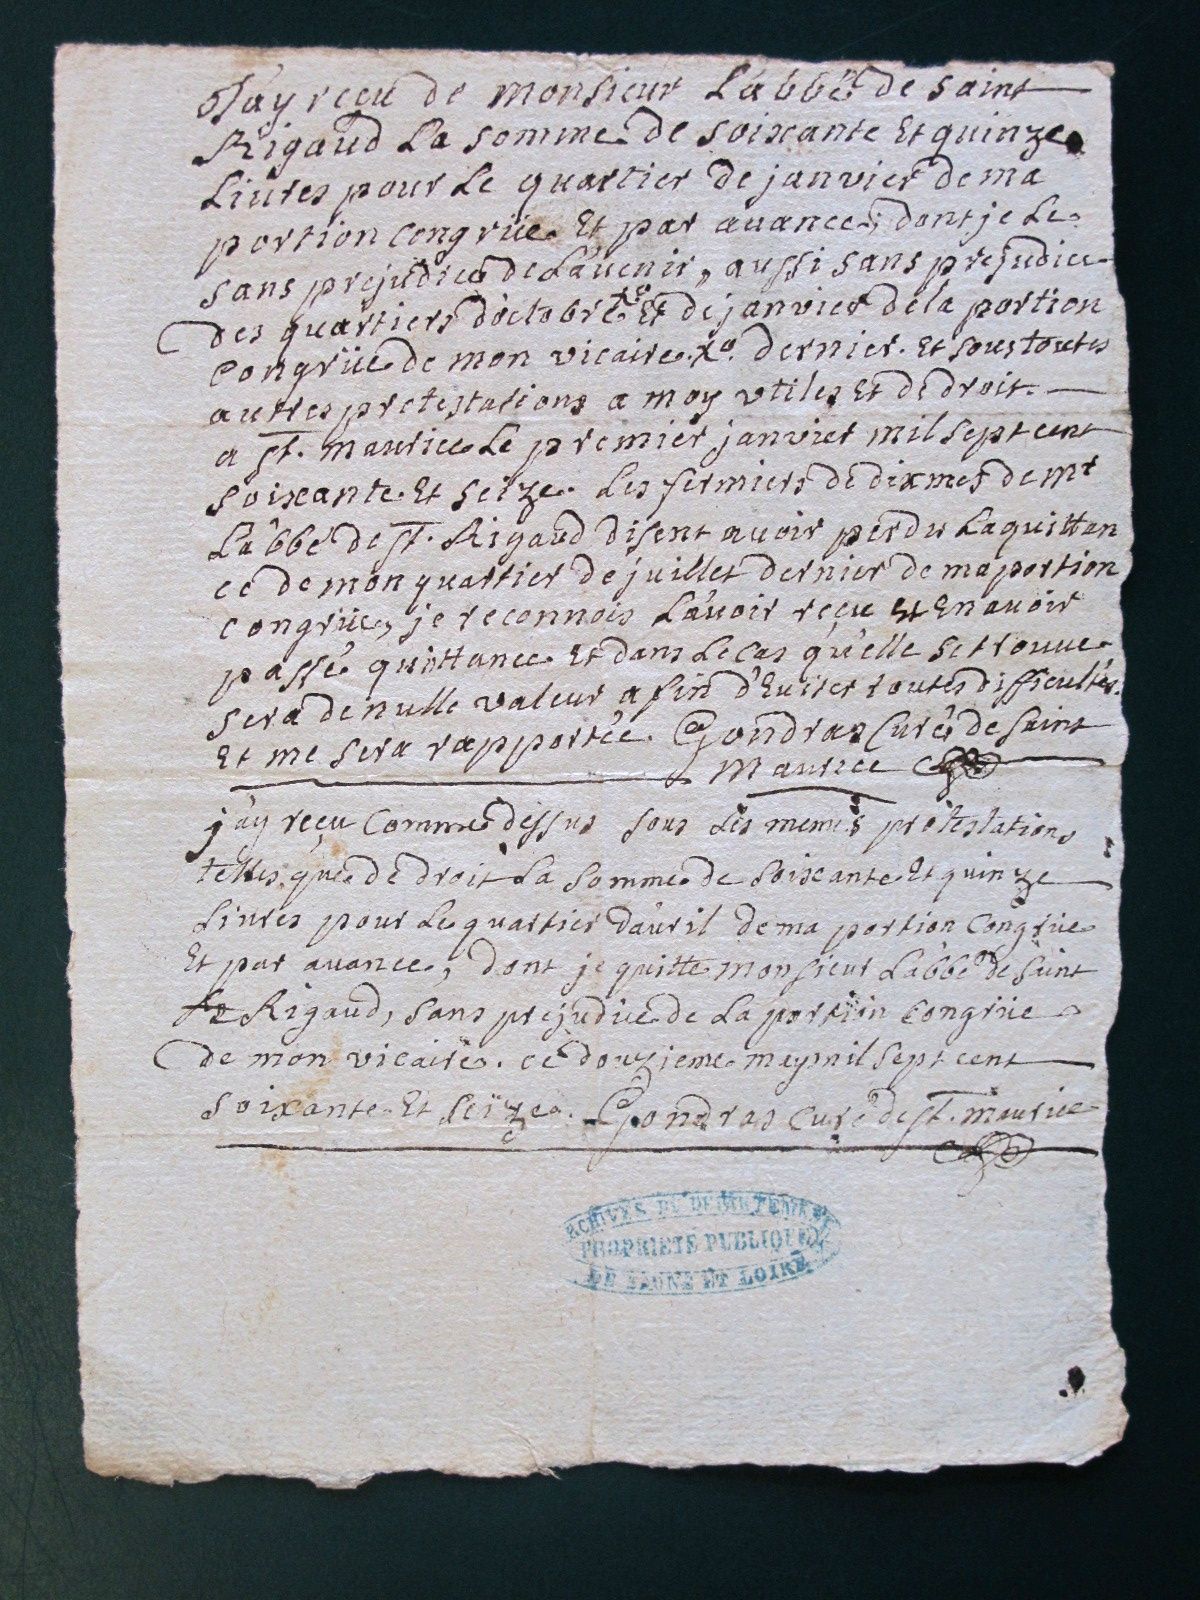 J'ay reçu de monsieur L'abbé de saint
Rigaud La somme de soixante Et quinze
Livres pour Le quartier de janvier de ma
portion congrüe Et par avance, dont je Le
sans prejudice de L'avenir, aussi sans prejudice
Des quartiers d'octobre Et de janvier de la portion
congrüe de mon vicaire. xo. dernier. Et sous toutes
autres protestations a moy utiles Et de droit.
a st. maurice Le premier janvier mil sept cent
soixante Et seize. Les fermiers de dixmes de mr
L'abbé de st. Rigaud disent avoir perdu La quittan
ce de mon quartier de juillet dernier de ma portion
congrüe, je reconnois L'avoir reçu Et En avoir
passé quittance Et dans Le cas qu'elle se trouve
sera de nulle valeur afin d'Eviter toutes difficultés.
Et me sera rapportée. Gondras Curé de saint
Maurice
j'ay reçu comme dessus sous Les memes protestations
telles que de droit La somme de soixante Et quinze
Livres pour Le quartier d'avril de ma portion congrüe
Et par avance, dont je quitte monsieur L'abbé de saint
Rigaud, sans prejudice de La portion congrüe
de mon vicaire. ce douzieme may mil sept cent
soixante Et seize. Gondras curé de st. maurice
ARCHIVES DU DEPARTEMENT
PROPRIÉTÉ PUBLIQUE
DE SAONE ET LOIRE